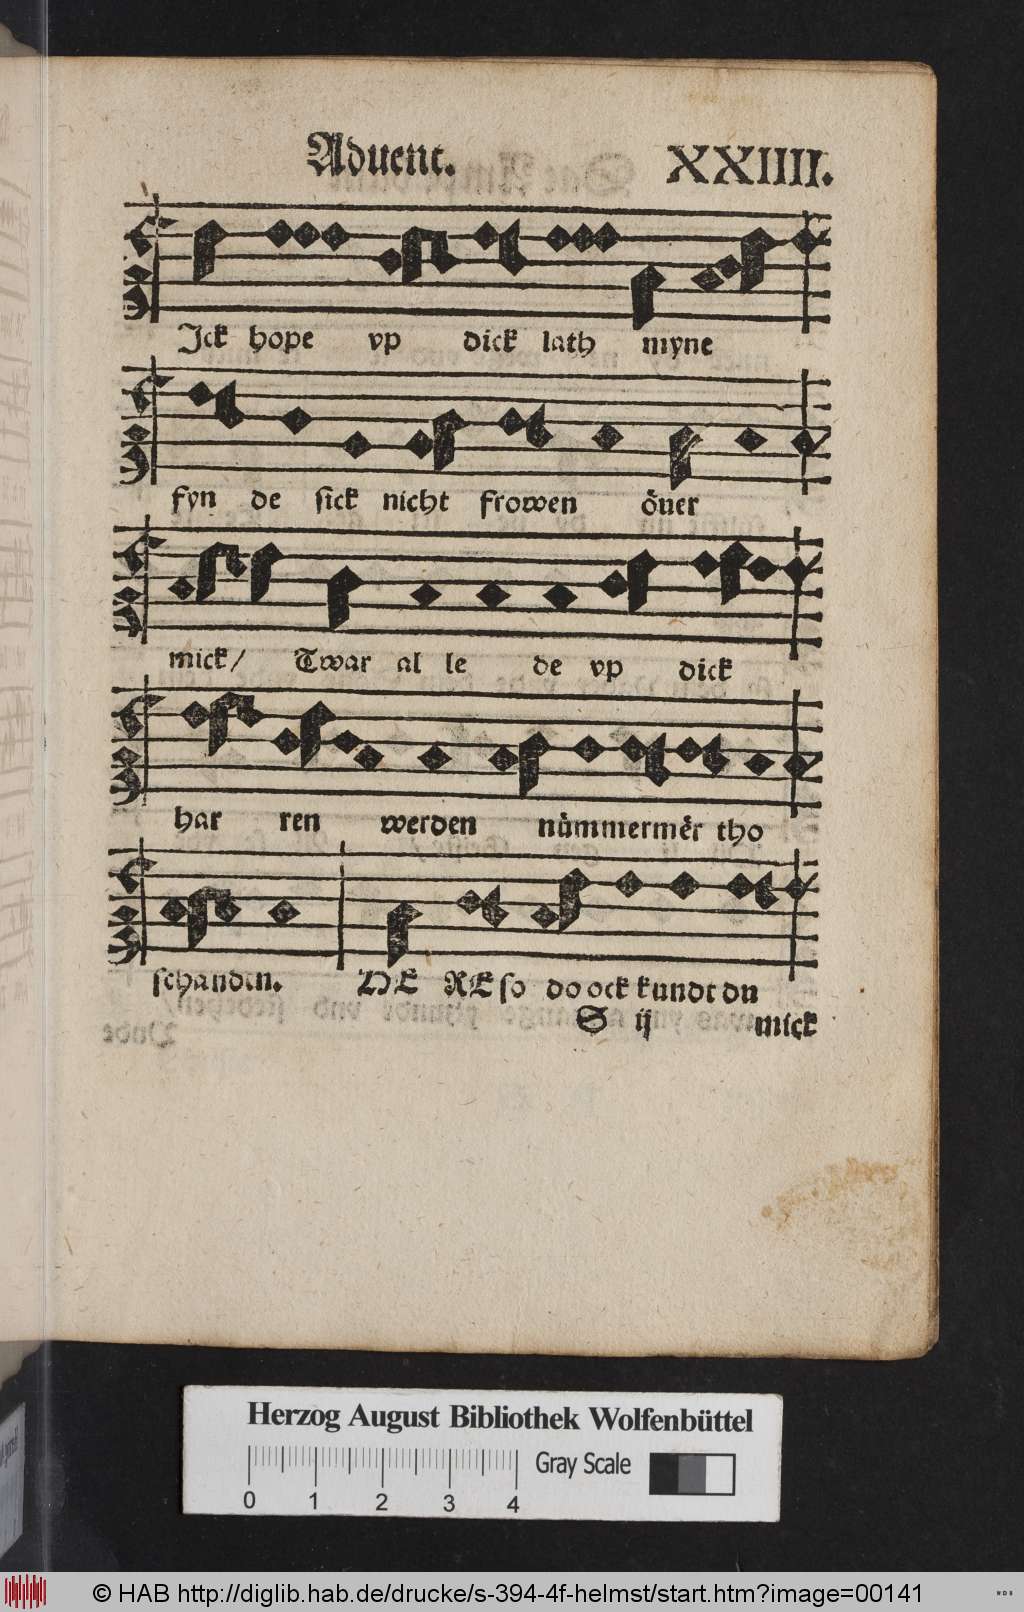 Aduent. XXIIII.
Jck hope vp dick lath myne
fyn de sick nicht frowen öuer
mick/ Twar al le de vp dick
har ren werden nümmermêr tho
schanden. HE RE so do ock kundt du
S ij mick
Herzog August Bibliothek Wolfenbüttel
Gray Scale
0 1 2 3 4
© HAB http://diglib.hab.de/drucke/s-394-4f-helmst/start.htm?image=00141